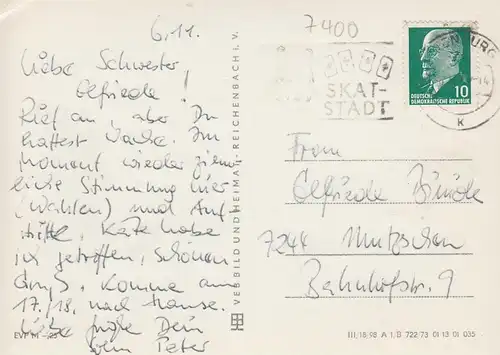 6.11.
Liebe Schwester
Elfriede!
Rief an, aber Du
hattest Wache. Im
Moment wieder ziem-
liche Stimmung hier
(Wahlen) und Auf-
tritte. Käte habe
ich getroffen, schönen
Gruß. Komme am
17./18. nach Hause.
Liebe Grüße Dein
Peter
EVP M -,25
VEB BILD UND HEIMAT · REICHENBACH i. V.
7400
SKAT-
STADT
NBURG
10
DEUTSCHE
DEMOKRATISCHE REPUBLIK
K
Elfriede
7244 Mutzschen
Bahnhofstr. 9
III/18/98 A 1/B 722/73 01 13 01 035